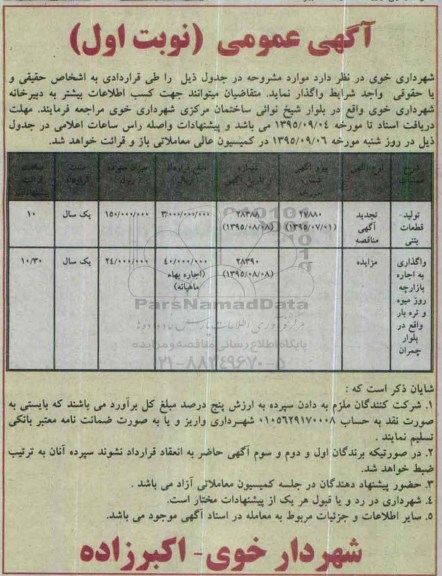 آگهی عمومی (نوبت اول)
شهرداری خوی در نظر دارد موارد مشروحه در جدول ذیل را طی قراردادی به اشخاص حقیقی و
یا حقوقی واجد شرایط واگذار نماید. متقاضیان میتوانند جهت کسب اطلاعات بیشتر به دبیرخانه
شهرداری خوی واقع در بلوار شیخ نوائی ساختمان مرکزی شهرداری خوی مراجعه فرمایند. مهلت
دریافت اسناد تا مورخه ۱۳۹۵/۰۹/۰۴ می باشد و پیشنهادات واصله راس ساعات اعلامی در جدول
ذیل در روز شنبه مورخه ۱۳۹۵/۰۹/۰۶ در کمیسیون عالی معاملاتی باز و قرائت خواهد شد.
تولید قطعات بتنی تجدید آگهی مناقصه ۲۷۸۸۰ (۱۳۹۵/۰۷/۰۱) ۲۸۳۸۸ (۱۳۹۵/۰۸/۰۸) ۳/۰۰۰/۰۰۰/۰۰۰ ۱۵۰/۰۰۰/۰۰۰ یک سال ۱۰
واگذاری به اجاره بازارچه روز میوه و تره بار واقع در بلوار چمران مزایده ۲۸۳۹۰ (۱۳۹۵/۰۸/۰۸) ۴۰/۰۰۰/۰۰۰ (اجاره بهاء ماهیانه) ۲۴/۰۰۰/۰۰۰ یک سال ۱۰/۳۰
ParsNamadData
پایگاه اطلاع رسانی مناقصه و مزایده
۰۲۱-۸۸۳۴۹۶۷۰-۵
شایان ذکر است که :
۱. شرکت کنندگان ملزم به دادن سپرده به ارزش پنج درصد مبلغ کل برآورد می باشند که بایستی به
صورت نقد به حساب ۰۱۰۵۶۲۹۱۷۰۰۰۸ شهرداری واریز و یا به صورت ضمانت نامه معتبر بانکی
تسلیم نمایند .
۲. در صورتیکه برندگان اول و دوم و سوم آگهی حاضر به انعقاد قرارداد نشوند سپرده آنان به ترتیب
ضبط خواهد شد.
۳. حضور پیشنهاد دهندگان در جلسه کمیسیون معاملاتی آزاد می باشد .
۴. شهرداری در رد و یا قبول هر یک از پیشنهادات مختار است.
۵. سایر اطلاعات و جزئیات مربوط به معامله در اسناد آگهی موجود می باشد.
شهردار خوی - اکبرزاده